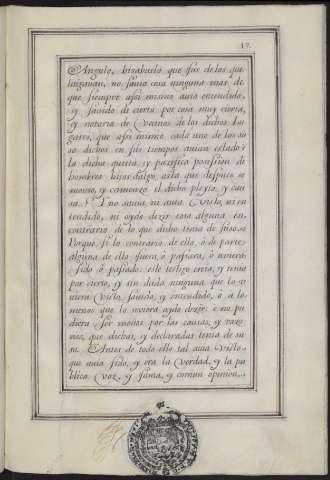 17.
Angulo, bisabuelo que fue de los que
litigauan, no sauia cosa ninguna mas de
que siempre assi mesmo auia entendido,
y sauido de cierto por cosa muy cierta,
y notoria de Vecinos de los dichos Lu
gares, que assi mismo cada uno de los su
so dichos en sus tiempos auian estado ẽ
la dicha quieta, y pacifica posesion de
hombres hijos dalgo, asta que despues se
mouio, y comenzo el dicho pleyto, y cau
sa. Y no auia, ni auia Visto, ni en
tendido, ni oydo dezir cosa alguna en
contrario de lo que dicho tenia de suso.
Porque, si lo contrario de ello, ò de parte
alguna de ello fuera, ò passara, ò uviera
sido ò pasado: este testigo creia, y tenia
por cierto, y sin duda ninguna que lo v
uiera Visto, sauido, y entendido, ò a lo
menos que lo uviera oydo dezir: è no pu
diera ser menos por las causas, y razo
nes, que dichas, y declaradas tenia de su
so. Antes de todo ello tal auia Visto
que auia sido, y era la Verdad, y la pu
blica Voz, y fama, y comun opinion,